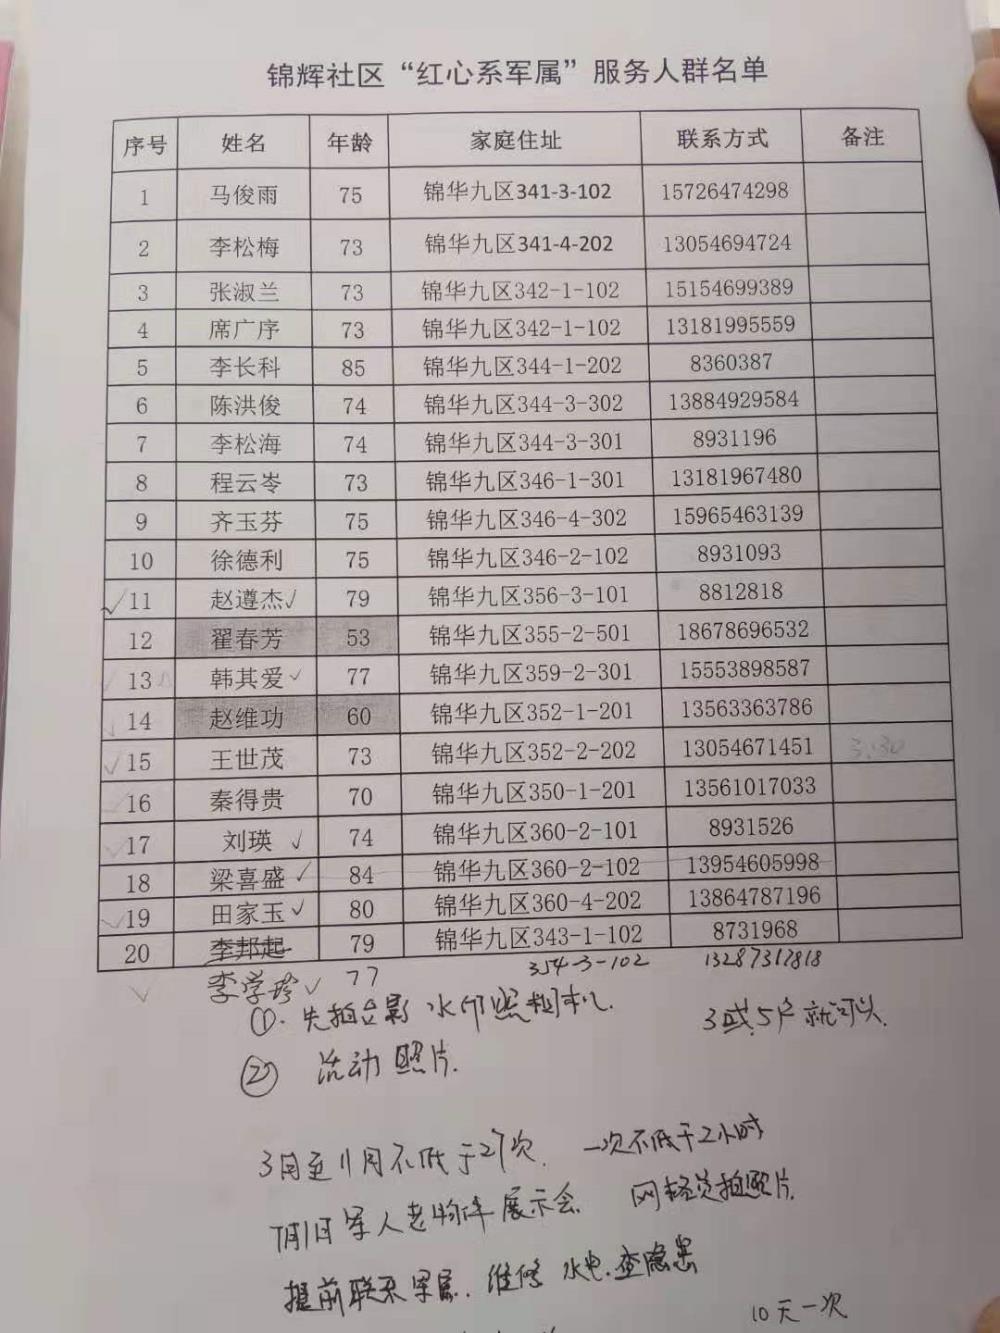 锦辉社区“红心系军属”服务人群名单
序号 姓名 年龄 家庭住址 联系方式 备注
1 马俊雨 75 锦华九区341-3-102 15726474298
2 李松梅 73 锦华九区341-4-202 13054694724
3 张淑兰 73 锦华九区342-1-102 15154699389
4 席广序 73 锦华九区342-1-102 13181995559
5 李长科 85 锦华九区344-1-202 8360387
6 陈洪俊 74 锦华九区344-3-302 13884929584
7 李松海 74 锦华九区344-3-301 8931196
8 程云岺 73 锦华九区346-1-301 13181967480
9 齐玉芬 75 锦华九区346-4-302 15965463139
10 徐德利 75 锦华九区346-2-102 8931093
✓11 赵遵杰✓ 79 锦华九区356-3-101 8812818
12 翟春芳 53 锦华九区355-2-501 18678696532
✓13 韩其爱✓ 77 锦华九区359-2-301 15553898587
✓14 赵维功 60 锦华九区352-1-201 13563363786
✓15 王世茂 73 锦华九区352-2-202 13054671451 3.30
16 秦得贵 70 锦华九区350-1-201 13561017033
✓17 刘瑛✓ 74 锦华九区360-2-101 8931526
18 梁喜盛✓ 84 锦华九区360-2-102 13954605998
✓19 田家玉✓ 80 锦华九区360-4-202 13864787196
20 李邦起 79 锦华九区343-1-102 8731968
✓ 李学珍✓ 77 354-3-102 13287317818
①. 先拍合影 水印照相机. 3或5户就可以.
② 活动照片.
3月至11月不低于27次. 一次不低于2小时
7月1日军人老物件展示会. 网格员拍照片.
提前联系军属. 维修 水电.查隐患
10天一次